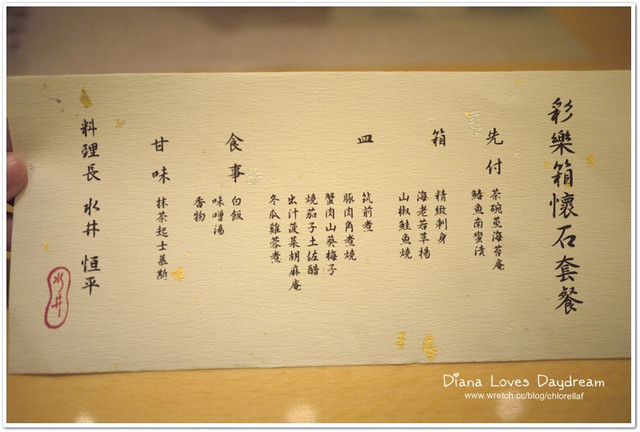 彩樂箱懷石套餐
先付
茶碗蒸海苔庵
鰆魚南蠻漬
箱
精緻刺身
海老若草揚
山椒鮭魚燒
皿
筑前煮
豚肉角煮燒
蟹肉山葵梅子
燒茄子土佐醋
出汁菠菜胡麻庵
冬瓜雞蓉煮
食事
白飯
味噌湯
香物
甘味
抹茶起士慕斯
料理長 水井 恒平
水井
Diana Loves Daydream
www.wretch.cc/blog/chlorellaf